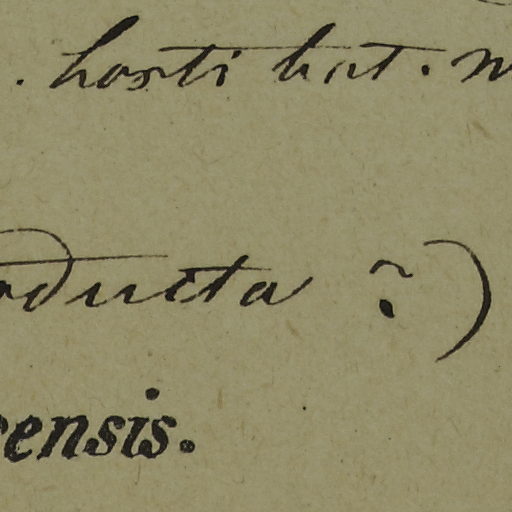 . horti bot.
oducta ?)
ensis.